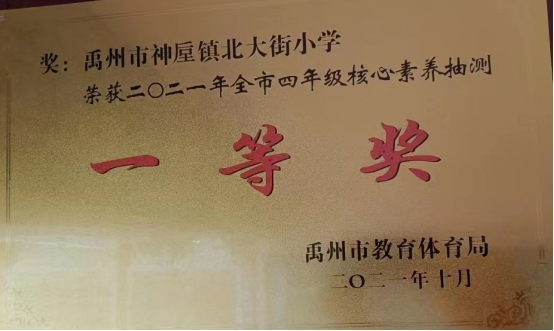 奖：禹州市神垕镇北大街小学
荣获二〇二一年全市四年级核心素养抽测
一等奖
禹州市教育体育局
二〇二一年十月